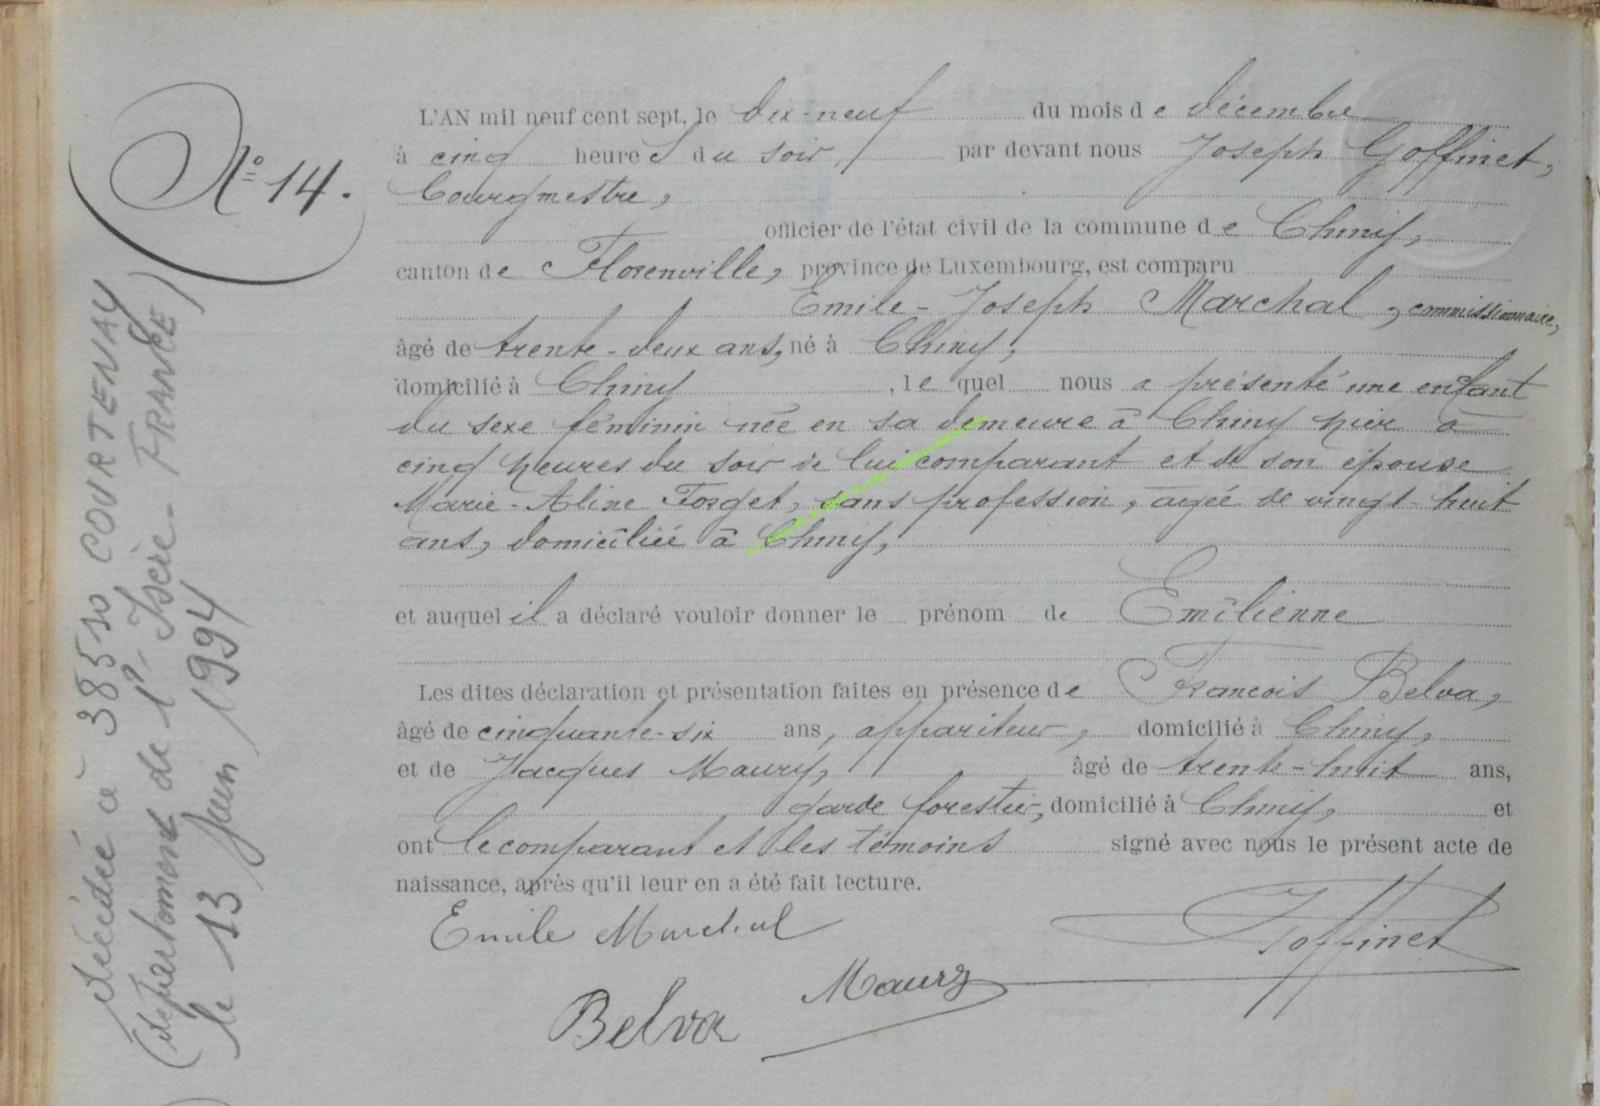 N° 14.
L'AN mil neuf cent sept, le dix-neuf du mois de décembre
à cinq heures du soir, par devant nous Joseph Goffinet,
Bourgmestre,
officier de l'état civil de la commune de Chiny,
canton de Florenville, province de Luxembourg, est comparu
Emile-Joseph Marchal, commissionnaire,
âgé de trente-deux ans, né à Chiny,
domicilié à Chiny, lequel nous a présenté une enfant
du sexe féminin née en sa demeure à Chiny hier à
cinq heures du soir de lui comparant et de son épouse
Marie-Aline Forget, sans profession, agée de vingt-huit
ans, domiciliée à Chiny,
et auquel il a déclaré vouloir donner le prénom de Emilienne
Les dites déclaration et présentation faites en présence de Francois Belva,
âgé de cinquante-six ans, appariteur, domicilié à Chiny,
et de Jacques Maury, âgé de trente-huit ans,
garde forestier, domicilié à Chiny, et
ont le comparant et les témoins signé avec nous le présent acte de
naissance, après qu'il leur en a été fait lecture.
Emile Marchal
Goffinet
Maury
Belva
décédée à 38510 COURTENAY
(département de l'Isère - FRANCE)
le 13 Juin 1994